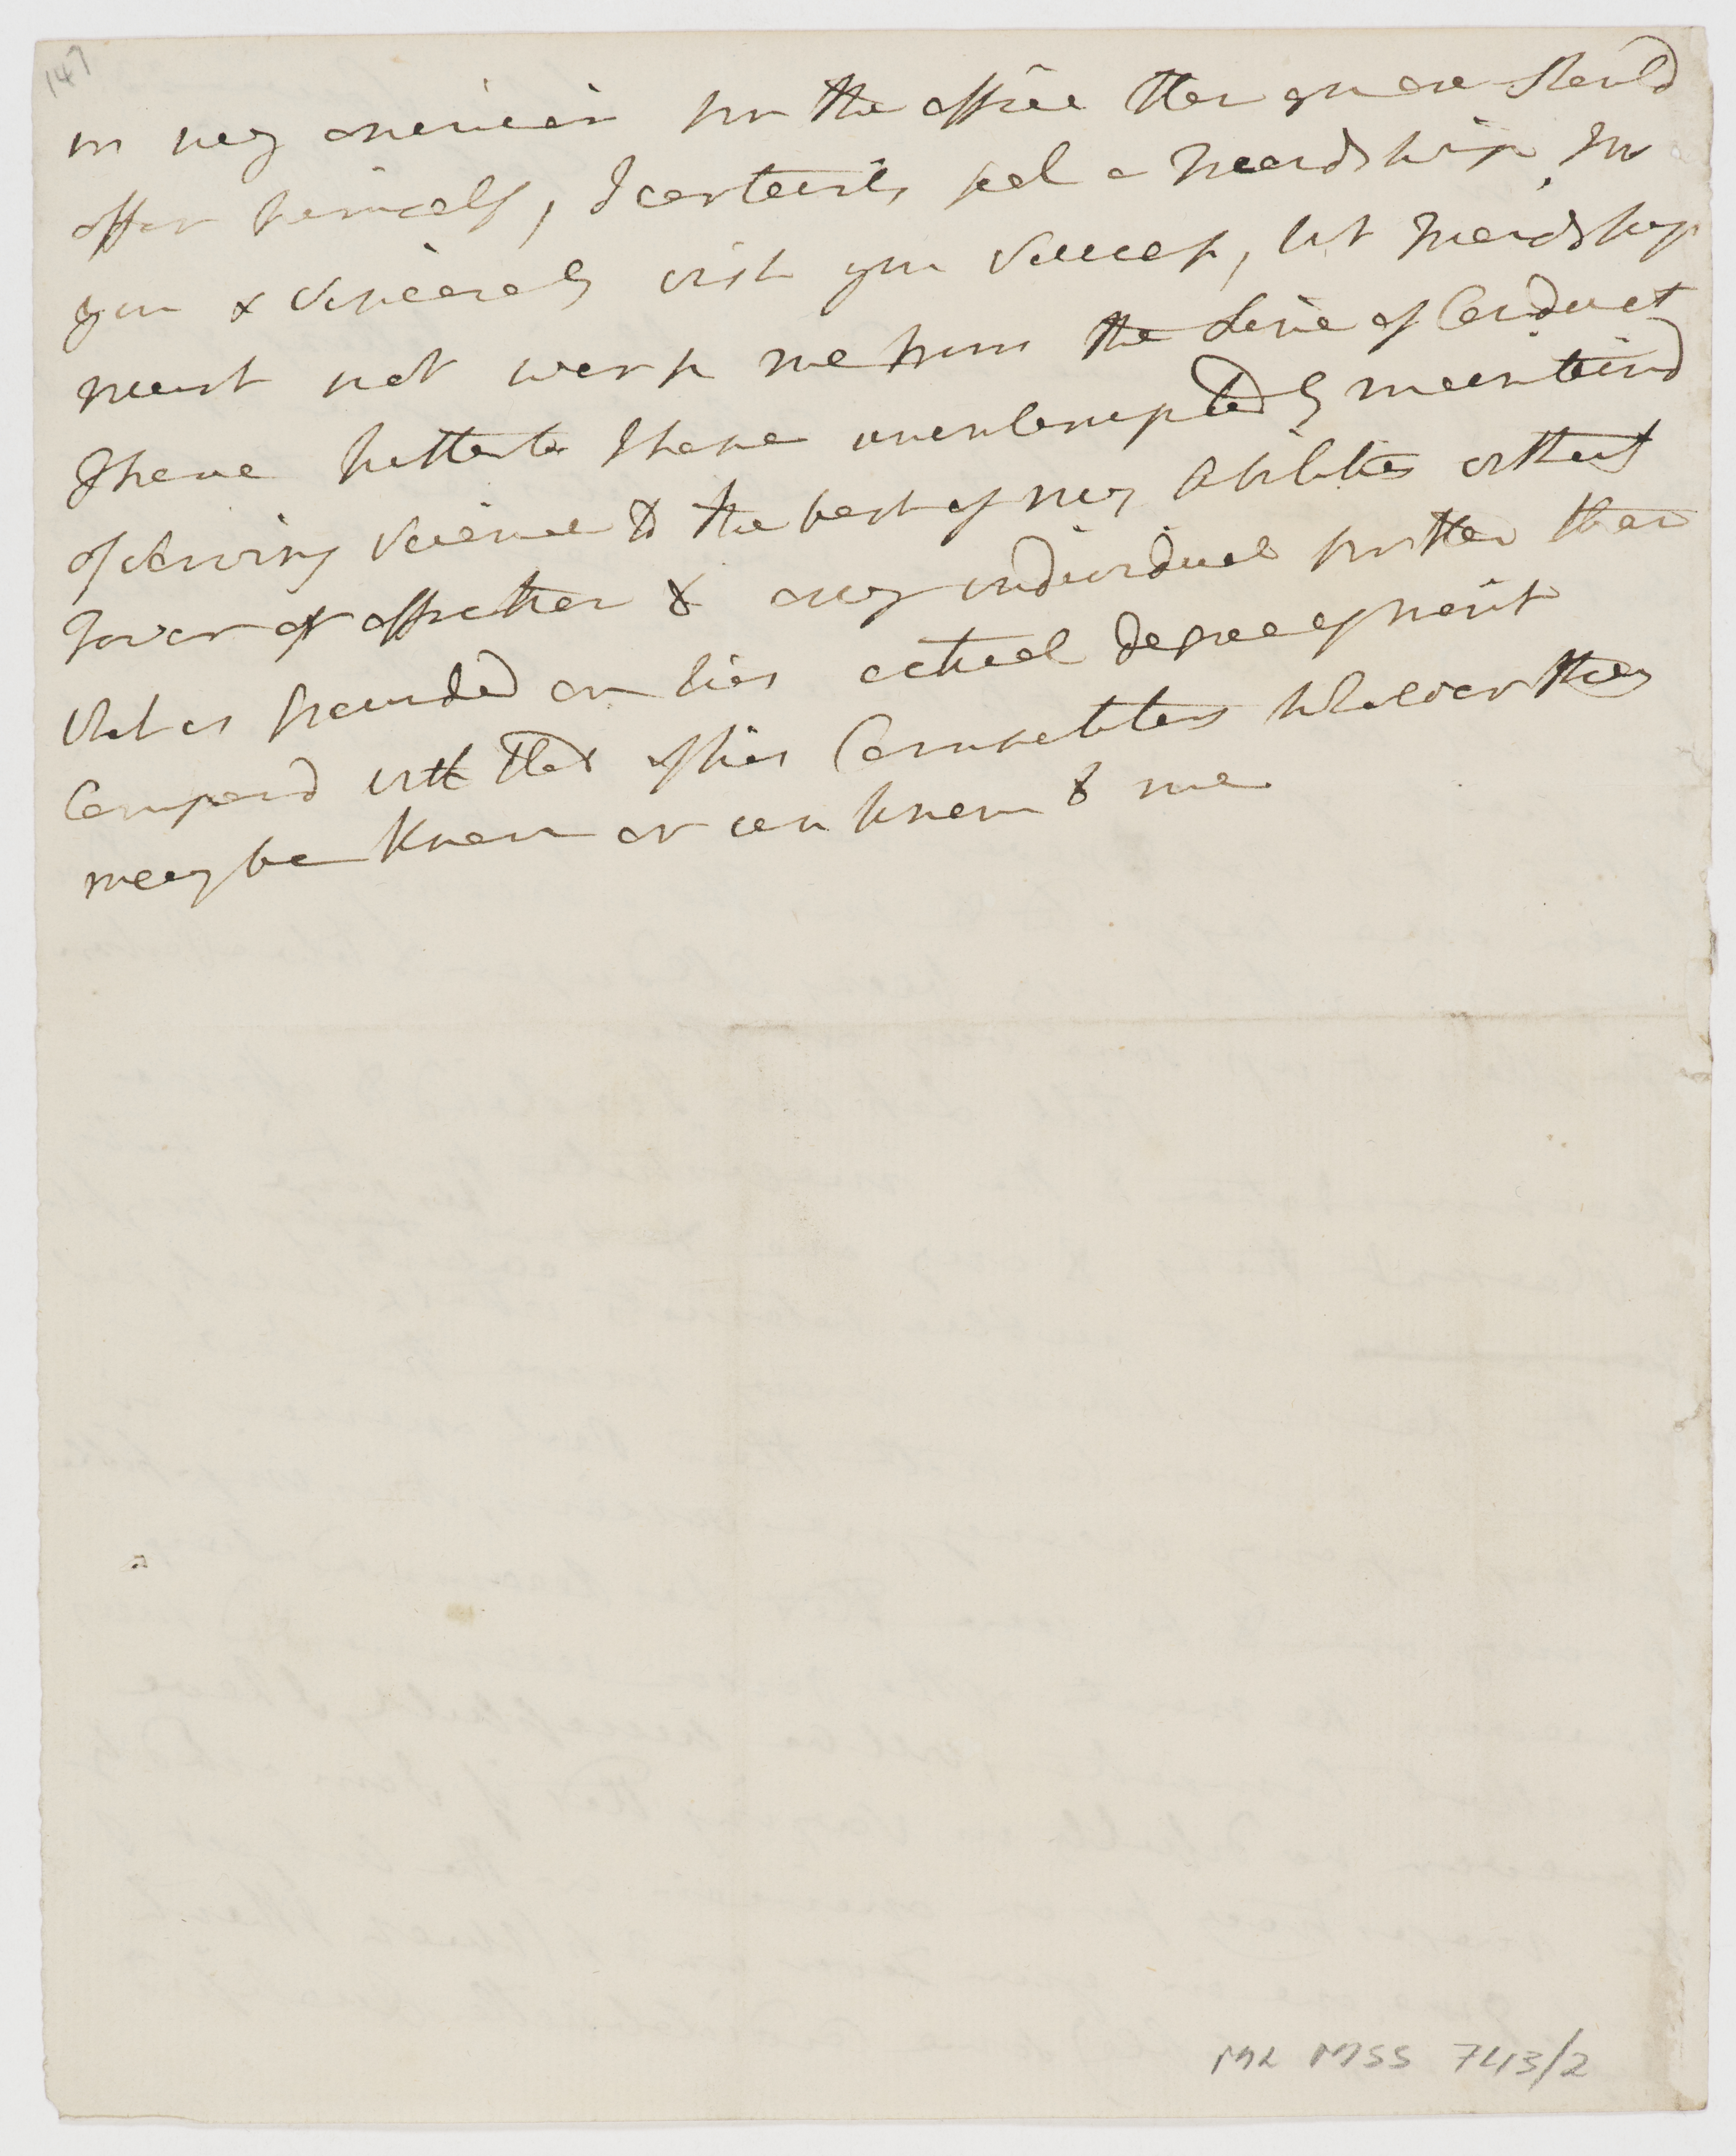 147
in my opinion for the office then you are should
offer himself, I certainly feel a Freindship for
you & Sincerely wish you Success, but Freindship
must not warp me from the Line of Conduct
I have hitherto I have uninteruptedly maintaind
of serving Science to the best of my abilities without
Favor or affection to any individual further than
that is grounded on his actual degree of merit
Compard with that of his Competitors whether they
may be Known or unknown to me
ML MSS 743/2